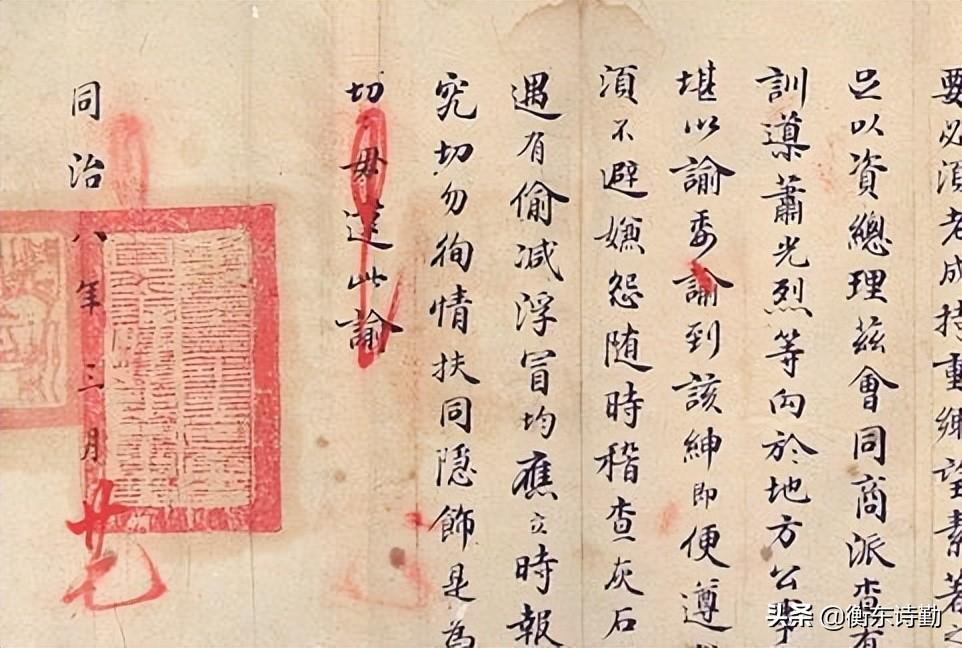 要必須老成持重練望素著之
足以資總理茲會同商派查有
訓導蕭光烈等向於地方公事
堪以諭委諭到該紳即便遵
須不避嫌怨随時稽查灰石
遇有偷减浮冒均應立時報
究切勿徇情扶同隱飾是為
切毋違此諭
同治八年三月廿七
头条 @衡东诗勤